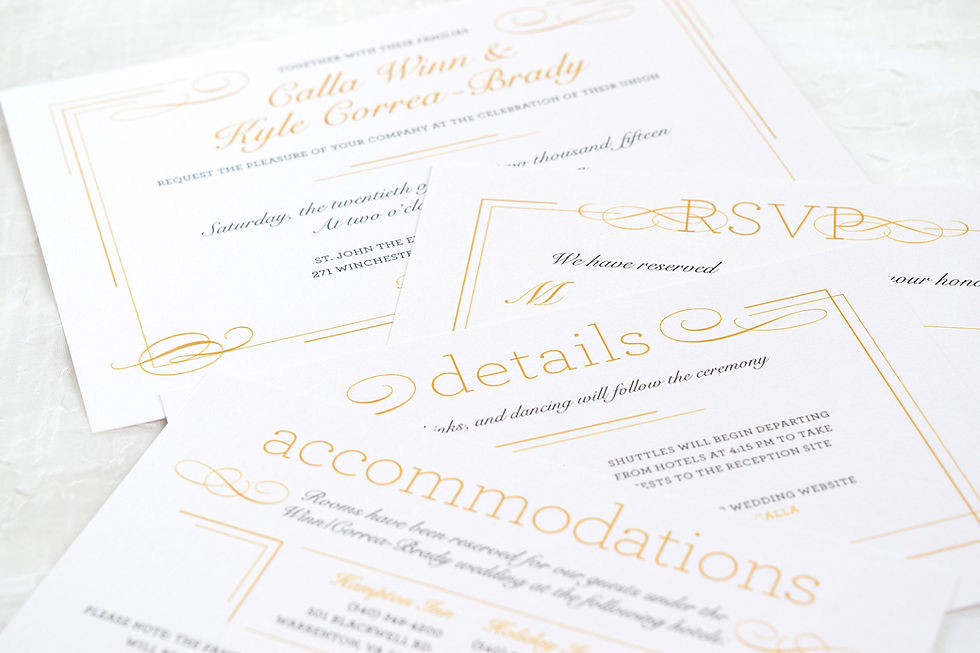 TOGETHER WITH THEIR FAMILIES
Calla Winn &
Kyle Correa-Brady
REQUEST THE PLEASURE OF YOUR COMPANY AT THE CELEBRATION OF THEIR UNION
Saturday, the twentieth o
wo thousand, fifteen
At two o'clo
ST. JOHN THE E
271 WINCHESTE
RSVP
We have reserved
our hono
M
details
inks, and dancing will follow the ceremony
SHUTTLES WILL BEGIN DEPARTING
FROM HOTELS AT 4:15 PM TO TAKE
ESTS TO THE RECEPTION SITE
WEDDING WEBSITE
CALLA
accommodations
Rooms have been reserved for our guests under the
Winn/Correa-Brady wedding at the following hotels:
Hampton Inn
(540) 349-4200
501 BLACKWELL RD.
WARRENTON, VA
Holiday
(540)
PLEASE NOTE: THE FAM
WILL BE